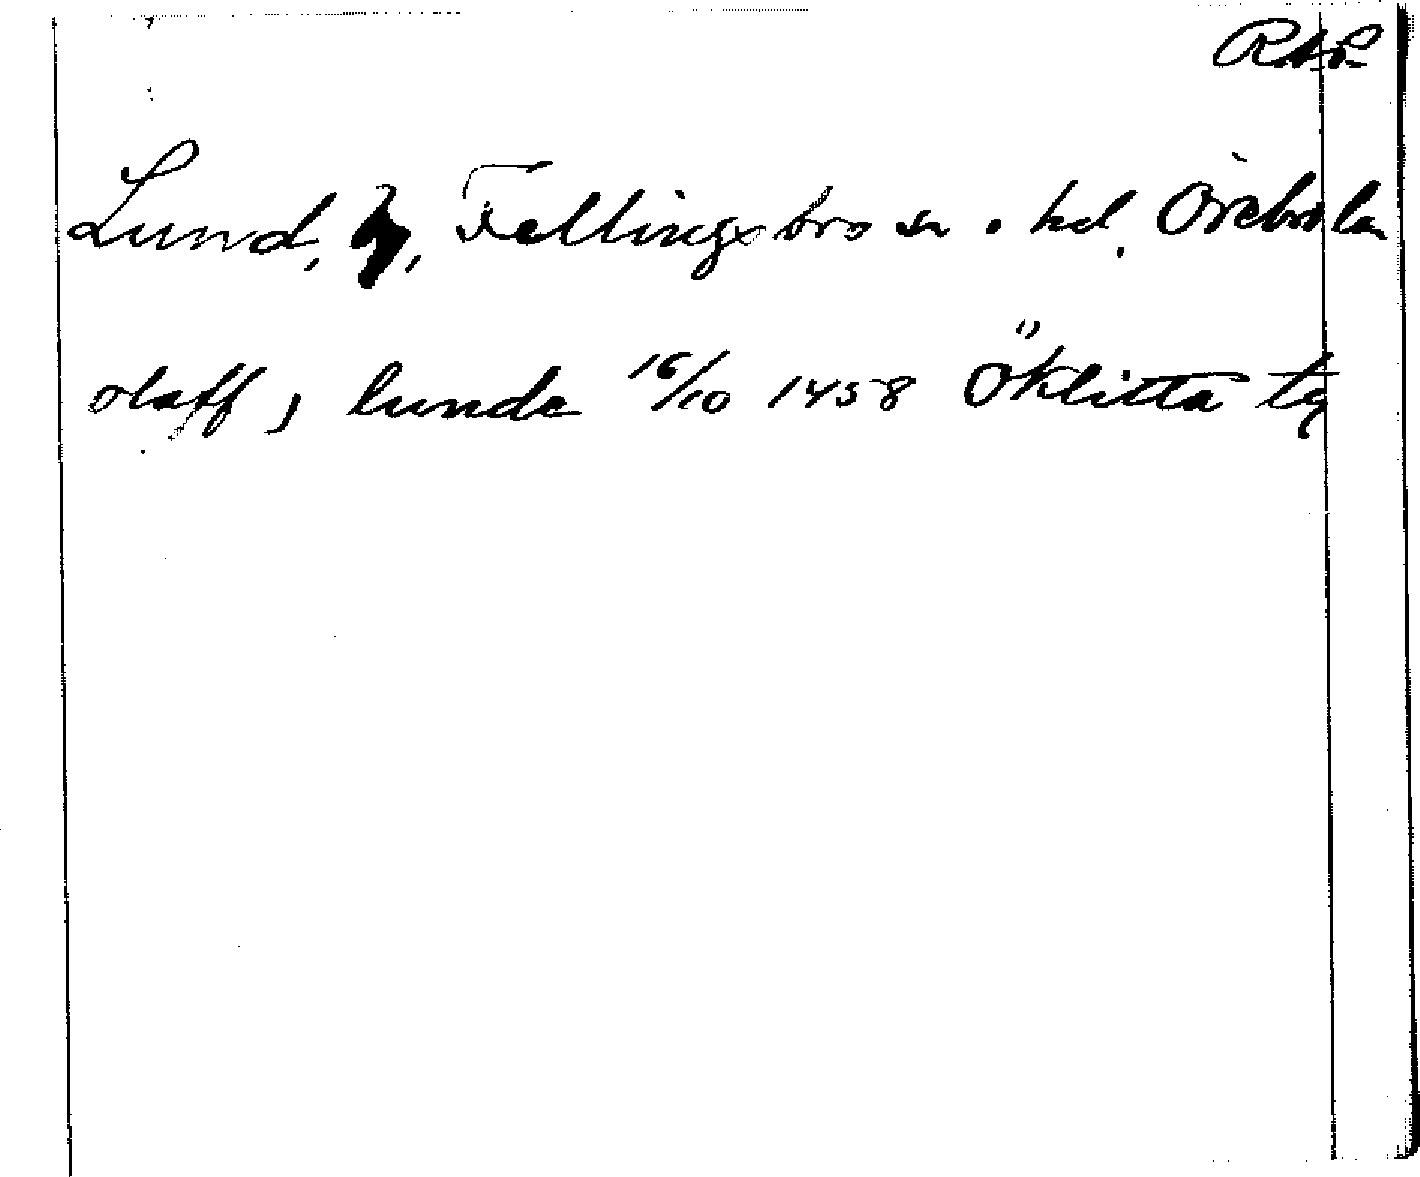 RAP
Lund, by, Fellingsbro sn o hd, Örebro län
olaff j lunde 16/10 1458 Öklitta tg